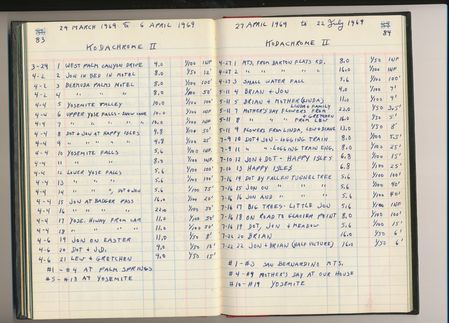 83
29 MARCH 1969 to 6 APRIL 1969
KODACHROME II
3-29 1 WEST PALM CANYON DRIVE 9.0 1/100 INF
4-2 2 JON IN BED IN MOTEL 8.0 1/50 12'
4-2 3 BERMUDA PALMS MOTEL 8.0 1/100 100'
4-2 4 " " " 8.0 1/100 50'
4-4 5 YOSEMITE VALLEY 10.0 1/100 100'
4-4 6 UPPER YOSE FALLS - 10.0
4-4 7 " " " 16.0 INF
4-4 8 DOT & JON AT HAPPY ISLES 4.8 1/50 50'
4-4 9 " " " " 4.8 1/100 25'
4-4 10 YOSEMITE FALLS 5.6 1/50 INF
4-4 11 " " 8.0 1/100 INF
4-4 12 LOWER YOSE FALLS 5.6 1/100 100'
4-4 13 " " " 5.6 1/100 100'
4-4 14 " " " , DOT & JON 5.6 1/100 75'
4-4 15 JON AT BADGER PASS 16.0 1/100 20'
4-4 16 " " " 22.0 1/100 30'
4-4 17 YOSE. HIWAY FROM CAR 11.0 1/100 50'
4-4 18 " " " " 11.0 1/100 50'
4-6 19 JON ON EASTER 11.0 1/50 8'
4-6 20 DOT & J.D. 9.0 1/50 15'
4-6 21 LEW & GRETCHEN 9.0 1/50 15'
#1 - #4 AT PALM SPRINGS
#5 - #18 AT YOSEMITE
84
27 APRIL 1969 to 22 July 1969
KODACHROME II
4-27 1 MTS. FROM BARTON FLATS RD. 8.0 1/50 INF
4-27 2 " " " " " 16.0 1/100 INF
4-27 3 SMALL WATER FALL 5.6 1/100 100'
5-11 4 BRIAN & JON 4.0 1/100 7'
5-11 5 BRIAN & MOTHER (LINDA) 11.0 1/100 9'
5-11 6 LINDA'S FAMILY
5-11 7 MOTHER'S DAY FLOWERS FROM 22.0 1/50 3.5'
& GRETCHEN
5-11 8 " " " FROM LEW 16.0 1/50
5-11 9 FLOWERS FROM LINDA, LEW & DIANE 13.0 1/50 8'
7-9 10 DOT & JON - LOGGING TRAIN 8.0 1/100
7-9 11 " " - LOGGING TRAIN ENG. 8.0 1/100 25'
7-10 12 JON & DOT - HAPPY ISLES 6.8 1/100 15'
7-10 13 HAPPY ISLES 6.8 1/100 25'
7-16 14 DOT BY FALLEN TUNNEL TREE 5.6 1/50 100'
7-16 15 JON ON " " " 5.6 1/50 90'
7-16 16 JON AND " " " 5.6 1/50 80'
7-16 17 BIG TREES - LITTLE JON 5.6 1/100 INF
7-16 18 ON ROAD TO GLACIER POINT 8.0 1/100 100'
7-16 19 DOT, JON & MEADOW 5.6 1/100 100'
7-22 20 BRIAN 16.0 1/50 6'
7-22 22 JON & BRIAN (HALF PICTURE) 16.0 1/50 6'
#1 - #3 SAN BERNARDINO MTS.
#4 - #9 MOTHER'S DAY AT OUR HOUSE
#10 - #19 YOSEMITE